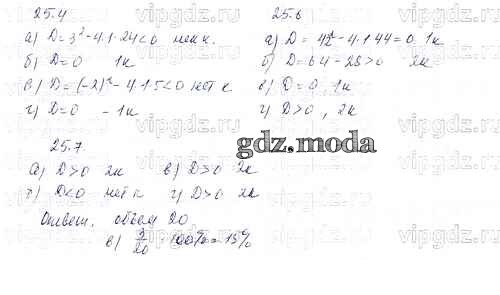 25.4
а) D=3²-4·1·24<0 нет к.
б) D=0 1к
в) D=(-2)²-4·1·5<0 нет к
г) D=0 - 1к
25.6
а) D=4²-4·1·44=0, 1к
б) D=64-28>0 2к
в) D=0, 1к
г) D>0, 2к
gdz.moda
25.7
а) D>0 2к в) D>0 2к
б) D<0 нет к г) D>0 2к
Ответ. объем 20
в) 3/20 · 100% = 15%
vipgdz.ru